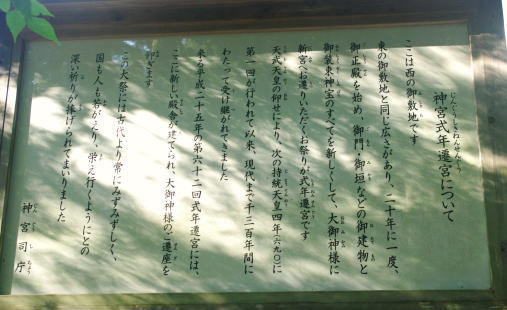 神宮式年遷宮について
ここは西の御敷地です
東の御敷地と同じ広さがあり、二十年に一度、
御正殿を始め、御門・御垣などの御建物と
御装束神宝のすべてを新しくして、大御神様に
新宮へお遷りいただくお祭りが式年遷宮です
天武天皇の仰せにより、次の持統天皇四年（六九〇）に
第一回が行われて以来、現代まで千三百年間に
わたって受け継がれてきました
来る平成二十五年の第六十二回式年遷宮には、
ここに新しい殿舎が建てられ、大御神様のご遷座を
仰ぎます
この大祭には古代より常にみずみずしく、
国も人も若がえり、栄え行くようにとの
深い祈りが捧げられてまいりました
神宮司庁